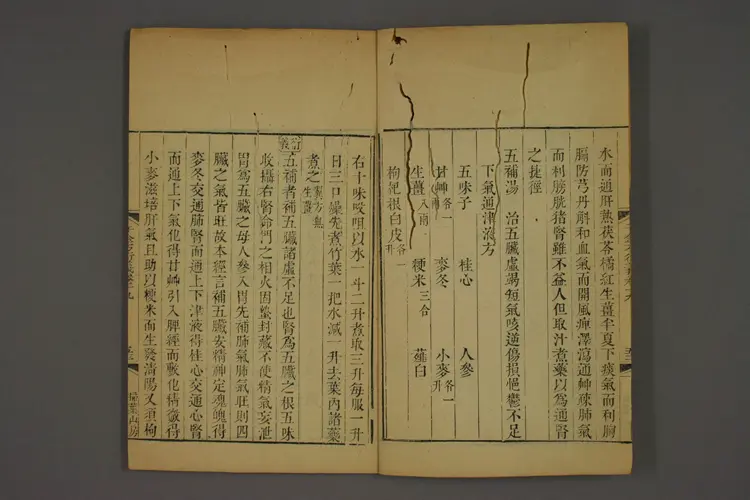 水而通肝熱茯苓橘紅生薑半夏下痰氣而利胸
膈防芎丹朋和血氣而開風痺澤瀉通艸疎肺氣
而利膀胱猪腎雖不益人但取汁煮藥以爲通腎
之捷徑
五補湯 治五臟虛竭短氣咳逆傷損悒鬱不足
下氣通津液方
五味子 桂心 人參
甘艸各一兩 麥冬 小麥各一升
生薑八兩 粳米三合 薤白
枸𣏌根白皮各一升
右十味㕮咀以水一斗二升煮取三升每服一升
日三口燥先煮竹葉一把水減一升去葉內諸藥
煮之翼方無生薑
衍義五補者補五臟諸虛不足也腎爲五臟之根五味
收攝右腎命門之相火固蟄封藏不使精氣妄泄
胃爲五臟之母人參入胃先補肺氣肺氣旺則四
臟之氣皆旺故本經言補五臟安精神定魂魄得
麥冬交通肺腎而通上下津液得桂心交通心腎
而通上下氣化得甘艸引入脾經而職化精微得
小麥滋培肝氣且助以粳米而生發清陽又須枸
掃葉山房